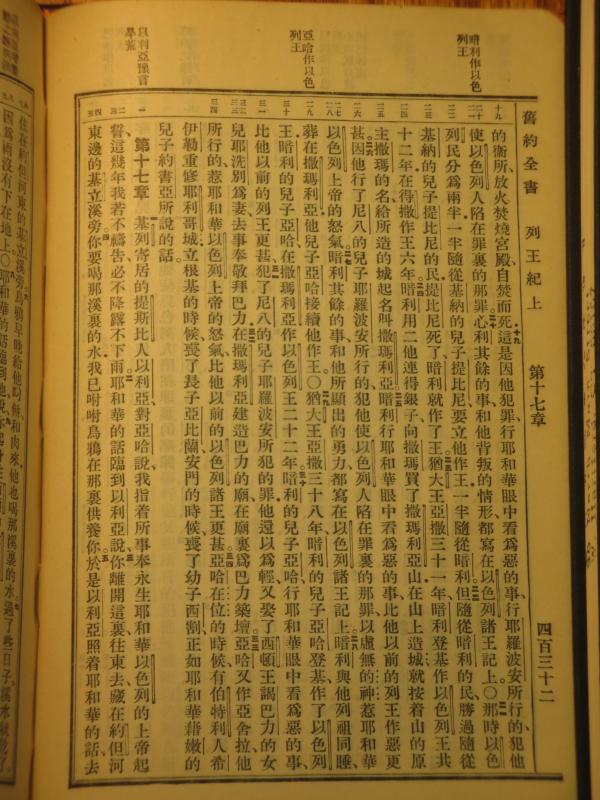 舊約全書 列王紀上 第十七章 四百三十二
暗利作以色列王
亞哈作以色列王
以利亞預言旱荒
的衛所放火焚燒宮殿自焚而死這是因他犯罪行耶和華眼中看爲惡的事行耶羅波安所行的犯他
使以色列人陷在罪裏的那罪心利其餘的事和他背叛的情形都寫在以色列諸王記上〇那時以色
列民分爲兩半一半隨從基納的兒子提比尼要立他作王一半隨從暗利但隨從暗利的民勝過隨從
基納的兒子提比尼的民提比尼死了暗利就作了王猶大王亞撒三十一年暗利登基作以色列王共
十二年在得撒作王六年暗利用二他連得銀子向撒瑪買了撒瑪利亞山在山上造城就按着山的原
主撒瑪的名給所造的城起名叫撒瑪利亞暗利行耶和華眼中看爲惡的事比他以前的列王作惡更
甚因他行尼八的兒子耶羅波安所行的犯他使以色列人陷在罪裏的那罪以虛無的神惹耶和華
以色列上帝的怒氣暗利其餘的事和他所顯出的勇力都寫在以色列諸王記上暗利與他列祖同睡、
葬在撒瑪利亞他兒子亞哈接續他作王〇猶大王亞撒三十八年暗利的兒子亞哈登基作了以色列
王暗利的兒子亞哈在撒瑪利亞作以色列王二十二年暗利的兒子亞哈行耶和華眼中看爲惡的事、
比他以前的列王更甚犯了尼八的兒子耶羅波安所犯的罪他還以爲輕又娶了西頓王謁巴力的女
兒耶洗別爲妻去事奉敬拜巴力在撒瑪利亞建造巴力的廟在廟裏爲巴力築壇亞哈又作亞舍拉他
所行的惹耶和華以色列上帝的怒氣比他以前的以色列諸王更甚亞哈在位的時候有伯特利人希
伊勒重修耶利哥城立根基的時候喪了長子亞比蘭安門的時候喪了幼子西割正如耶和華藉嫩的
兒子約書亞所說的話
第十七章 基列寄居的提斯比人以利亞對亞哈說我指着所事奉永生耶和華以色列的上帝起
誓這幾年我若不禱告必不降露不下雨耶和華的話臨到以利亞說你離開這裏往東去藏在約但河
東邊的基立溪旁你要喝那溪裏的水我已吩咐烏鴉在那裏供養你於是以利亞照着耶和華的話去
住在約但河東的基立溪旁烏鴉早晚給他叼餅和肉來他也喝那溪裏的水過了些日子溪水就乾了
因爲雨沒有下在地上〇耶和華的話臨到他說